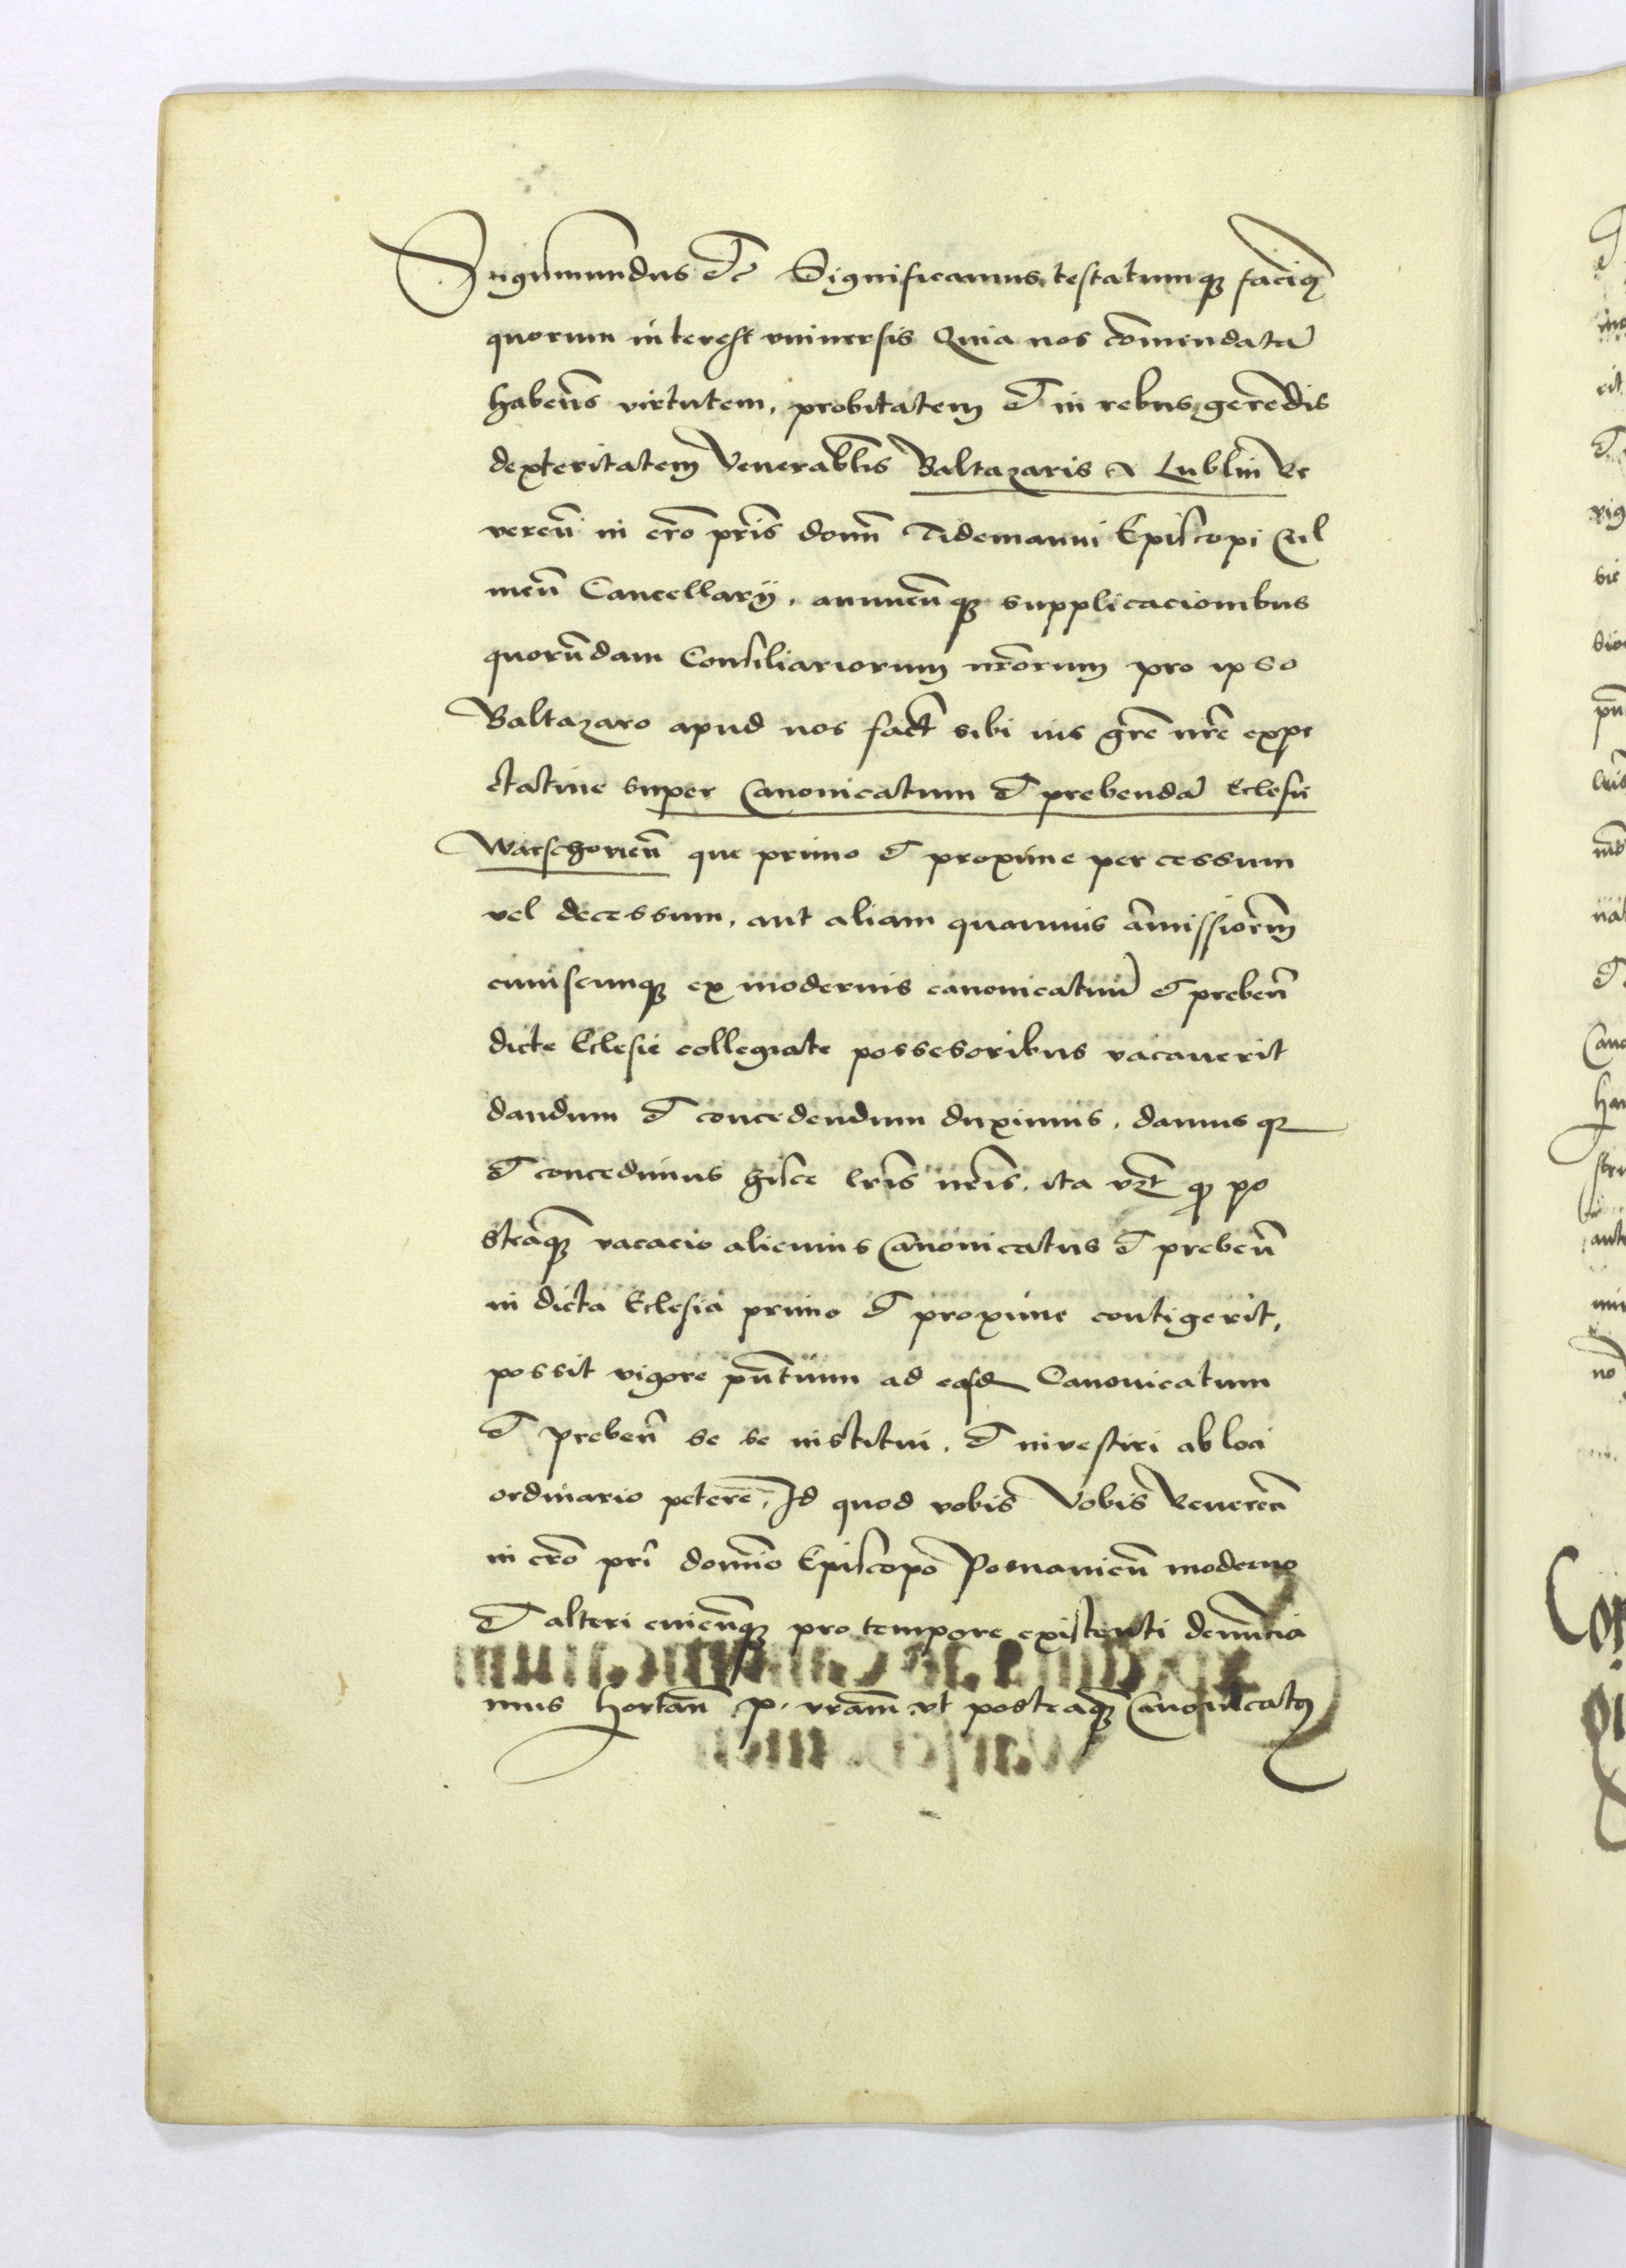 Sigismundus etc Significamus testatumq facimus
quorum interest vniuersis Quia nos comendatā
habentes virtutem, probitatem et in rebus gerēdis
dexteritatem Venerablis Baltazaris a Lublin Re
verēn in cro pris domn Tidemanni Episcopi Cul
mēn Cancellarÿ, annuenq supplicacionibus
quorūdam Consiliariorum nrorum pro ipso
Baltazaro apud nos fact sibi ius gre nre expe
ctatiue super Canonicatum et prebendā Eclesie
Warschouień que primo et proxime per cessum
vel decessum, aut aliam quamuis amissionem
cuiuscunq ex modernis canonicatuū et prebeń
dicte Eclesie collegiate possesoribus vacauerit
dandum et concedendum duximus, damus q
et concedimus hisce lris nris, ita vt q po
steaq vacacio alicuius Canonicatus et prebeń
in dicta Eclesia primo et proxime contigerit,
possit vigore pntium ad eosd Canonicatum
et prebeń se se institui, et inuestiri ab loci
ordinario petere, Id quod vobis Vobis Reuereń
in cro pri domino Episcopo Posnanień moderno
et alteri cuicunq pro tempore existenti denuncia
mus hortań p. vram vt posteaq Canonicatus